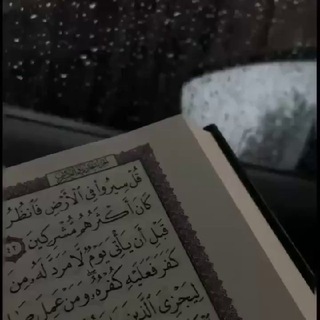 قُلْ سِيرُوا۟ فِى ٱلْأَرْضِ فَٱنظُرُ
كَانَ أَكْثَرُهُم مُّشْرِكِينَ ٤٢
قَبْلِ أَن يَأْتِىَ يَوْمٌ لَّا مَرَدَّ لَهُۥ مِنَ
كَفَرَ فَعَلَيْهِ كُفْرُهُۥ وَمَنْ عَمِلَ
لِيَجْزِىَ ٱلَّذِينَ